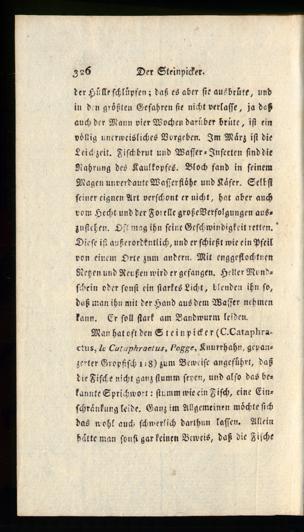 326 Der Steinpicker.
der Hülle schlüpfen; daß es aber sie ausbrüte, und
in den größten Gefahren sie nicht verlasse, ja daß
auch der Mann vier Wochen darüber brüte, ist ein
völlig unerweisliches Vorgeben. Im März ist die
Leichzeit. Fischbrut und Wasser-Insecten sind die
Nahrung des Kaulkopfes. Bloch fand in seinem
Magen unverdaute Wasserflöhe und Käfer. Selbst
seiner eignen Art verschont er nicht, hat aber auch
vom Hecht und der Forelle große Verfolgungen aus-
zustehen. Oft mag ihn seine Geschwindigkeit retten.
Diese ist außerordentlich, und er schießt wie ein Pfeil
von einem Orte zum andern. Mit enggeflochtnen
Netzen und Reußen wird er gefangen. Heller Mond-
schein oder sonst ein starkes Licht, blenden ihn so,
daß man ihn mit der Hand aus dem Wasser nehmen
kann. Er soll stark am Bandwurm leiden.
Man hat oft den Steinpicker (C. Cataphra-
ctus, le Cataphractus, Pogge, Knurrhahn, gepan-
zerter Gropfisch 118) zum Beweise angeführt, daß
die Fische nicht ganz stumm seyen, und also das be-
kannte Sprichwort: stumm wie ein Fisch, eine Ein-
schränkung leide. Ganz im Allgemeinen möchte sich
das wohl auch schwerlich darthun lassen. Allein
hätte man sonst gar keinen Beweis, daß die Fische